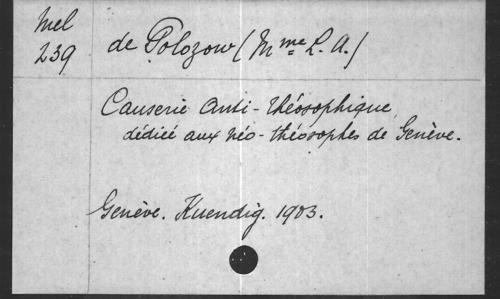 Mel
239
de Polozow (Mme L. A.)
Causerie anti-théosophique,
dédicé aux néo-théosophes de Genève.
Genève. Kuendig. 1903.